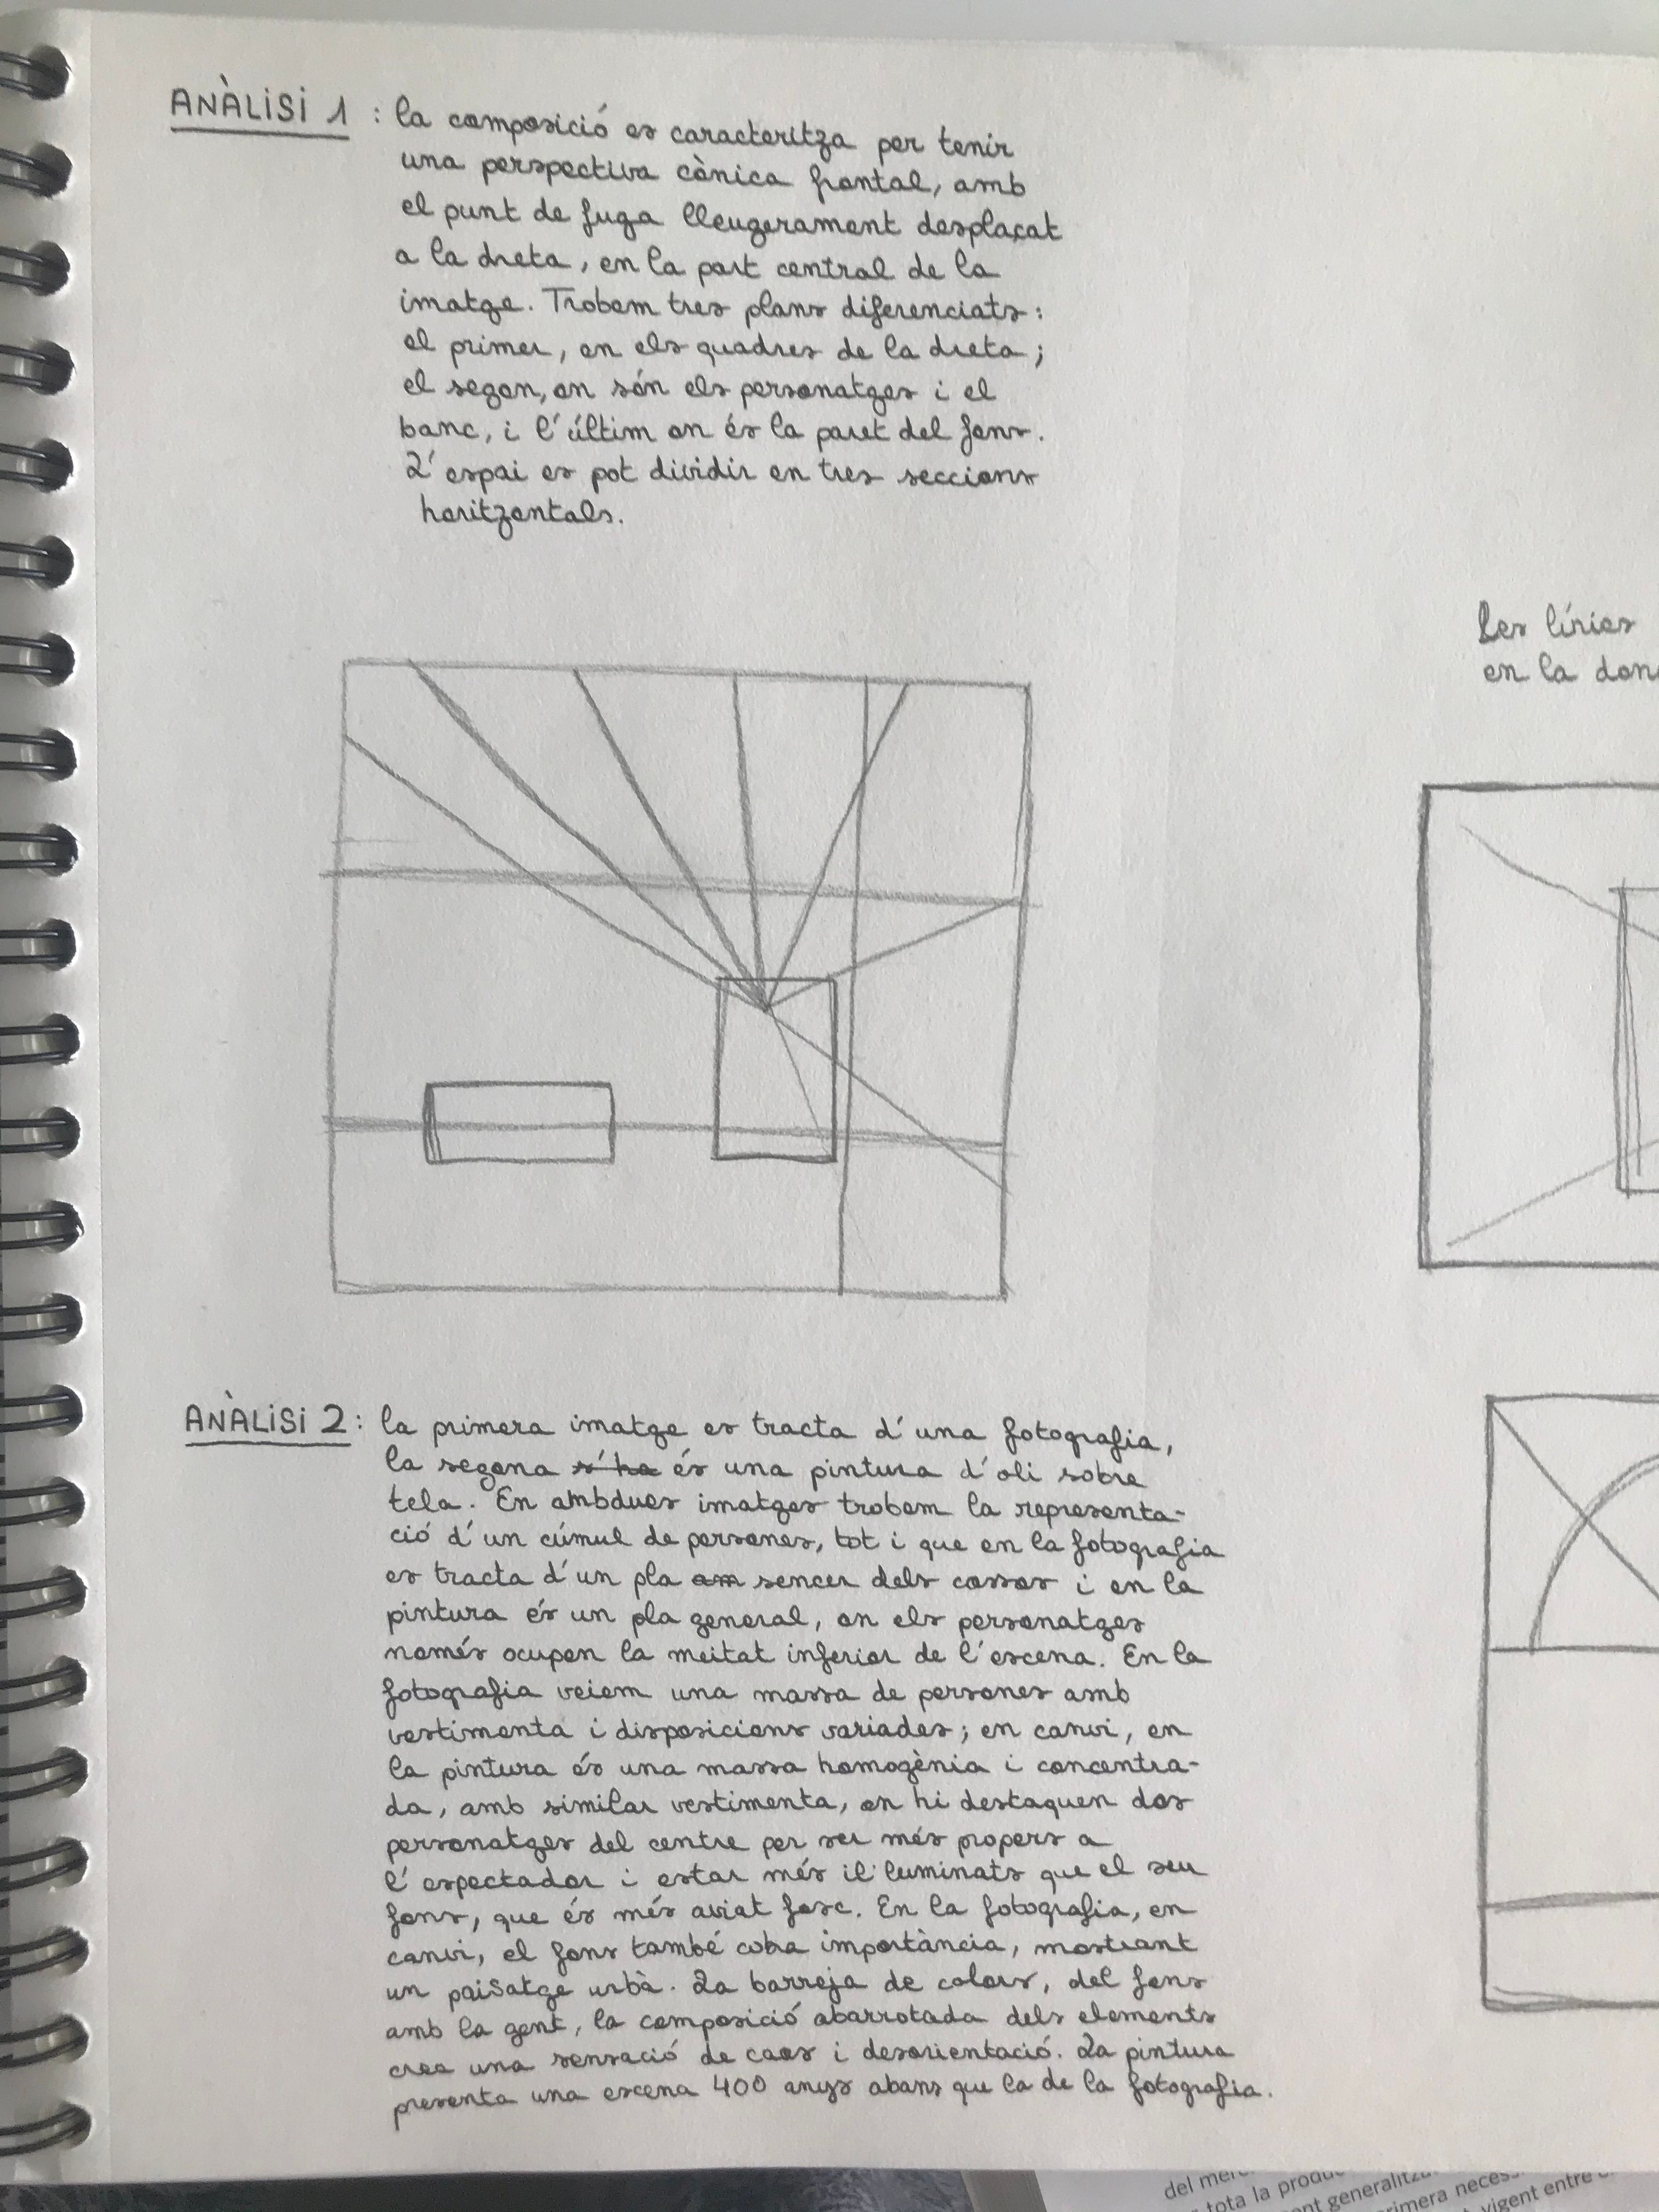 ANÀLISI 1: la composició es caracteritza per tenir
una perspectiva cònica frontal, amb
el punt de fuga lleugerament desplaçat
a la dreta, en la part central de la
imatge. Trobem tres plans diferenciats:
el primer, on els quadres de la dreta;
el segon, on són els personatges i el
banc, i l'últim on és la paret del fons.
L'espai es pot dividir en tres seccions
horitzontals.
Les línies
en la don
ANÀLISI 2: la primera imatge es tracta d'una fotografia,
la segona s'ha és una pintura d'oli sobre
tela. En ambdues imatges trobem la representa-
ció d'un cúmul de persones, tot i que en la fotografia
es tracta d'un pla am sencer dels cossos i en la
pintura és un pla general, on els personatges
només ocupen la meitat inferior de l'escena. En la
fotografia veiem una massa de persones amb
vestimenta i disposicions variades; en canvi, en
la pintura és una massa homogènia i concentra-
da, amb similar vestimenta, on hi destaquen dos
personatges del centre per ser més propers a
l'espectador i estar més il·luminats que el seu
fons, que és més aviat fosc. En la fotografia, en
canvi, el fons també cobra importància, mostrant
un paisatge urbà. La barreja de colors, del fons
amb la gent, la composició abarrotada dels elements
crea una sensació de caos i desorientació. La pintura
presenta una escena 400 anys abans que la de la fotografia.
del mer
tota la produ
nt generalitz
rimera neces
vigent entre